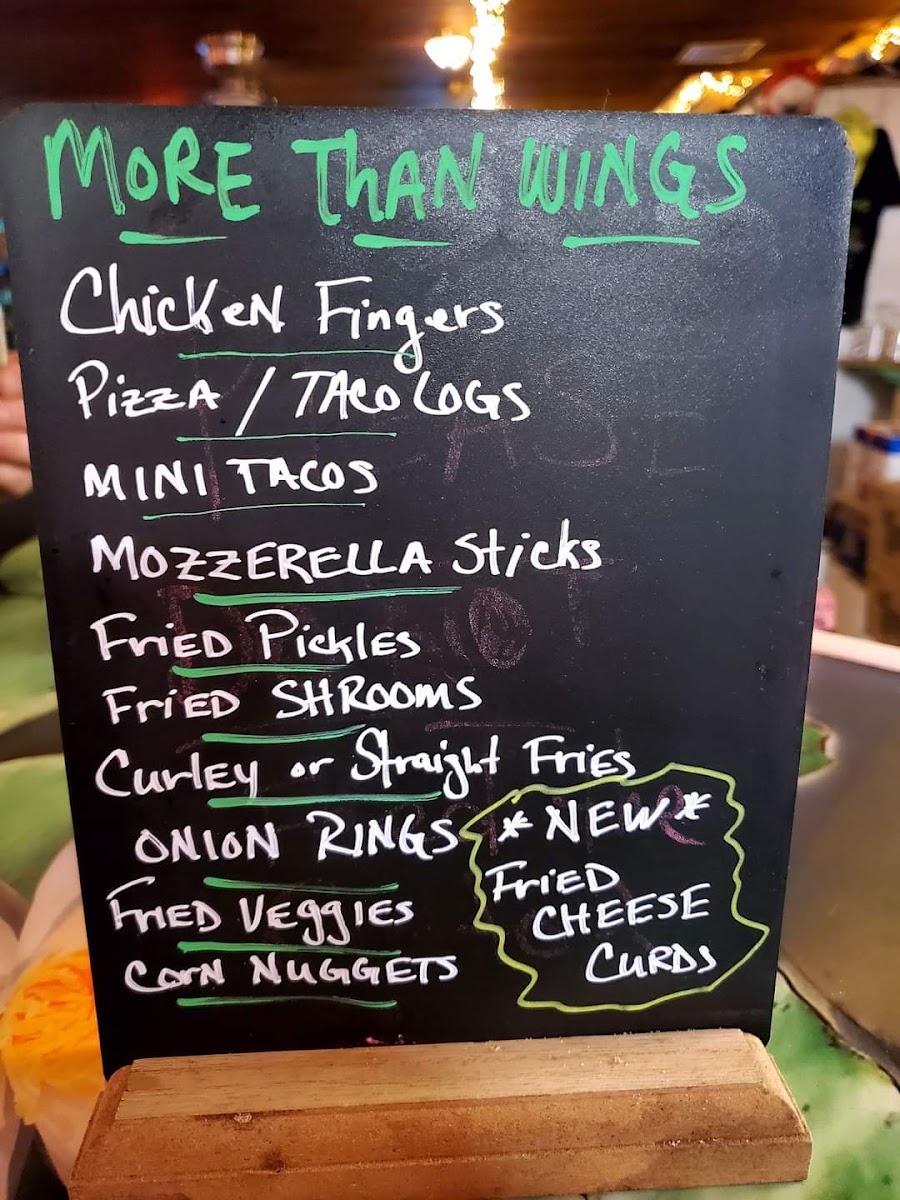 MORE THAN WINGS
Chicken Fingers
Pizza / TACO LOGS
MINI TACOS
MOZZERELLA Sticks
Fried Pickles
Fried SHROOMS
Curley or Straight Fries
ONION RINGS
Fried Veggies
Corn NUGGETS
*NEW*
Fried
CHEESE
CURDS